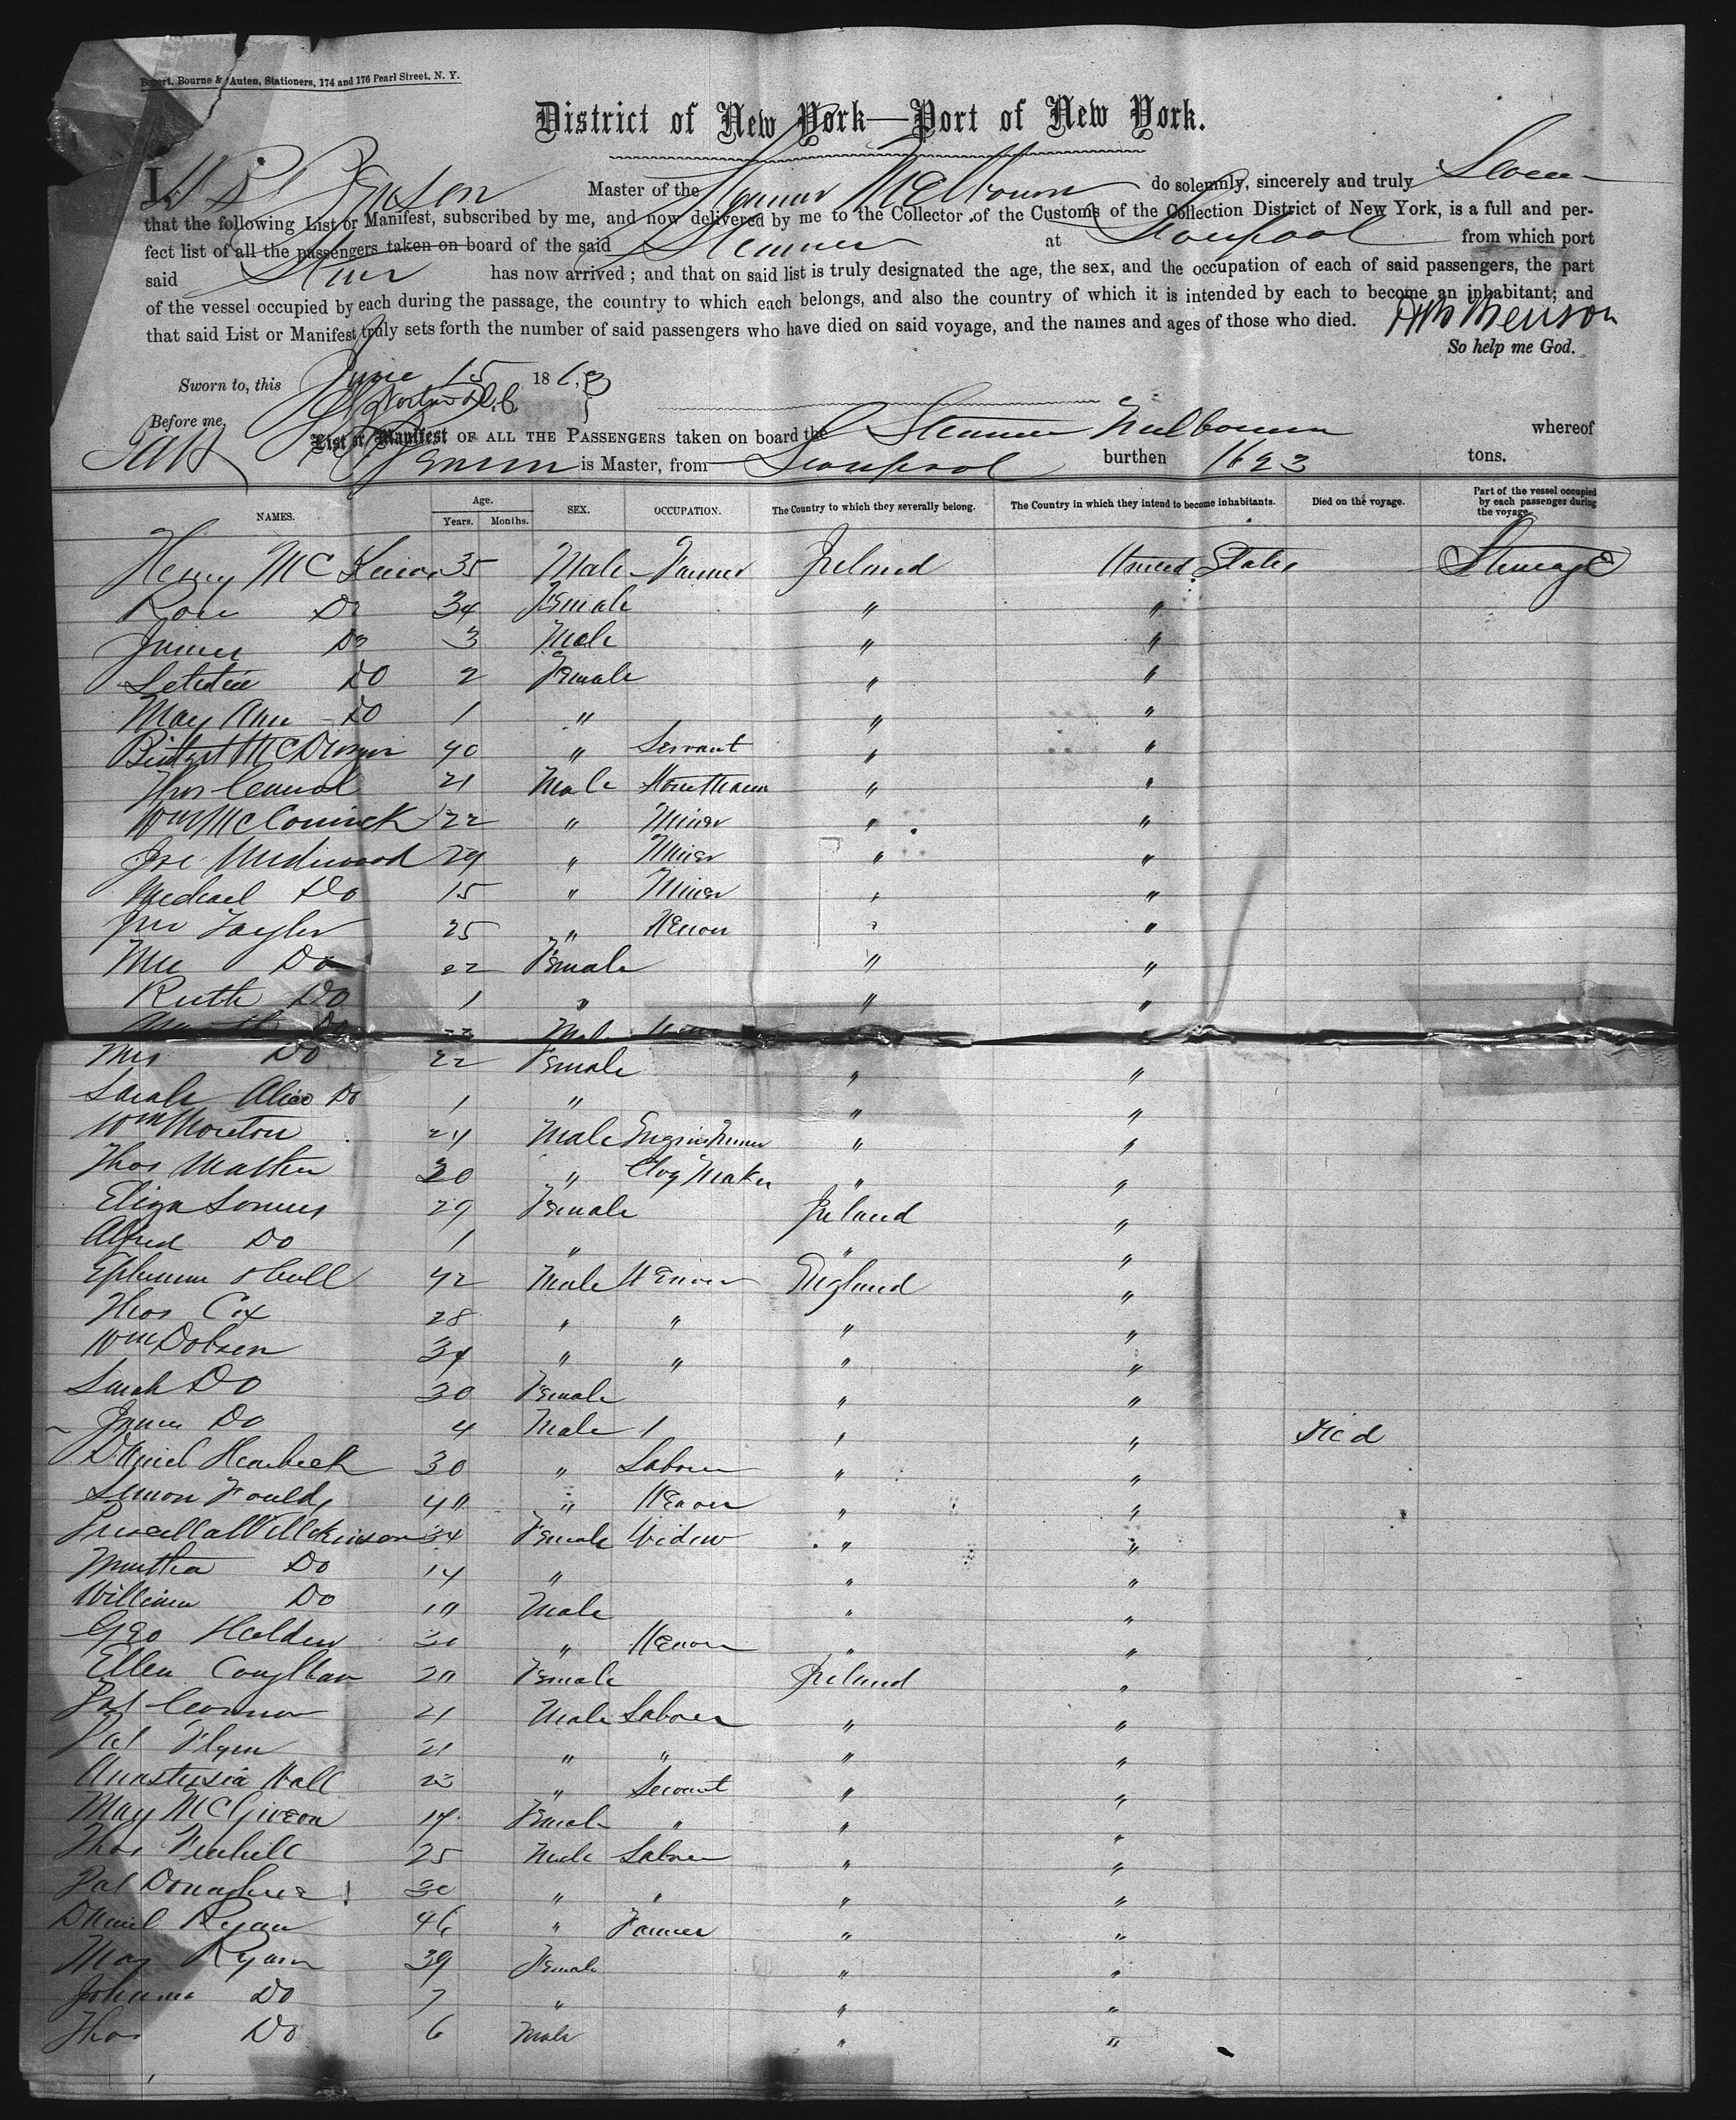 Bogert, Bourne & Auten, Stationers, 174 and 176 Pearl Street, N. Y.
District of New York—Port of New York.
I, Master of the Steamer Melbourn do solemnly, sincerely and truly Swear
that the following List or Manifest, subscribed by me, and now delivered by me to the Collector of the Customs of the Collection District of New York, is a full and per-
fect list of all the passengers taken on board of the said Steamer at Liverpool from which port
said Stmr has now arrived; and that on said list is truly designated the age, the sex, and the occupation of each of said passengers, the part
of the vessel occupied by each during the passage, the country to which each belongs, and also the country of which it is intended by each to become an inhabitant; and
that said List or Manifest truly sets forth the number of said passengers who have died on said voyage, and the names and ages of those who died.
So help me God.
Sworn to, this June 15 1863
Before me,
List or Manifest OF ALL THE PASSENGERS taken on board the Steamer Melbourn whereof
is Master, from Liverpool burthen 1623 tons.
NAMES. Age. Years. Months. SEX. OCCUPATION. The Country to which they severally belong. The Country in which they intend to become inhabitants. Died on the voyage. Part of the vessel occupied by each passenger during the voyage.
Henry 35 Male Farmer Ireland United States Steerage
Rose Do 34 Female " "
James Do 3 Male " "
Letitia DO 2 Female " "
May Ann DO 1 " " "
40 " Servant " "
Thos 21 Male " "
Wm McCormick 22 " Miner " "
29 " Miner " "
Michael Do 15 " Miner " "
Taylor 25 " Weaver " "
Do 22 Female " "
Ruth Do 1 " " "
Do 22
Mrs Do 22 Female " "
Sarah Alice Do 1 " " "
Wm Morton 24 Male " "
Thos Mather 30 " Clog Maker " "
Eliza 29 Female Ireland "
Alfred Do 1 " " "
42 Male Weaver England "
Thos Cox 28 " " " "
Wm Dobson 34 " " " "
Sarah DO 30 Female " "
James Do 4 Male 1 " " Died
Daniel 30 " Laborer " "
Simon Foulds 40 " Weaver " "
Priscilla Wilkinson 34 Female Widow " "
Martha Do 14 " " "
William Do 10 Male " "
Geo Holden " Weaver " "
Ellen Coughlan 20 Female Ireland "
Pat Connor 21 Male Laborer " "
Pat Flynn 21 " " " "
Anastasia Wall 23 " Servant " "
May McGiveon 17 Female " " "
Thos 25 Male Laborer " "
Pat Donaghue 30 " " " "
Daniel Ryan 46 " Farmer " "
May Ryan 39 Female " "
Johanna DO 7 " " "
Thos Do 6 Male " "